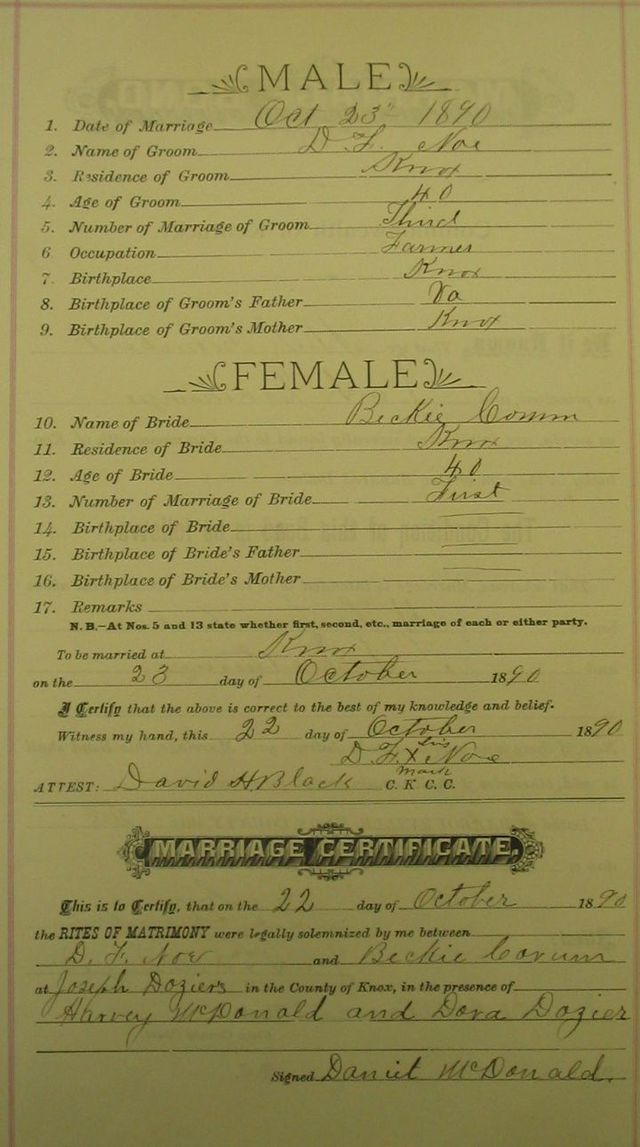 MALE
1. Date of Marriage Oct 23" 1890
2. Name of Groom D. F. Noe
3. Residence of Groom Knox
4. Age of Groom 40
5. Number of Marriage of Groom Third
6 Occupation Farmer
7. Birthplace Knox
8. Birthplace of Groom's Father Va
9. Birthplace of Groom's Mother Knox
FEMALE
10. Name of Bride Beckie Corum
11. Residence of Bride Knox
12. Age of Bride 40
13. Number of Marriage of Bride First
14. Birthplace of Bride
15. Birthplace of Bride's Father
16. Birthplace of Bride's Mother
17. Remarks
N. B.—At Nos. 5 and 13 state whether first, second, etc., marriage of each or either party.
To be married at Knox
on the 23 day of October 1890
I Certify that the above is correct to the best of my knowledge and belief.
Witness my hand, this 22 day of October 1890
D. F. X Noe
his
mark
ATTEST: David H Black C. K C. C.
MARRIAGE CERTIFICATE.
This is to Certify, that on the 22 day of October 1890
the RITES OF MATRIMONY were legally solemnized by me between
D. F. Noe and Beckie Corum
at Joseph Doziers in the County of Knox, in the presence of
Harvey McDonald and Dora Dozier
Signed Daniel McDonald.